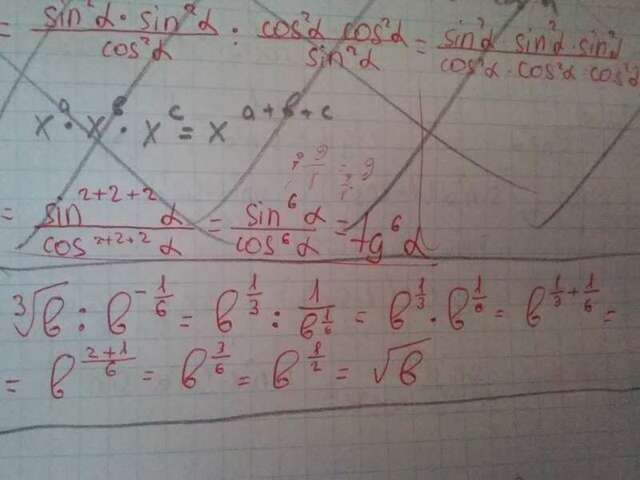 = sin²α · sin²α / cos²α : cos²α cos²α / sin²α = sin²α sin²α · sin²α / cos²α · cos²α · cos²α
xᵃ · xᵇ · xᶜ = x^(a+b+c)
= sin^(2+2+2) α / cos^(2+2+2) α = sin⁶α / cos⁶α = tg⁶α
∛b : b^(-1/6) = b^(1/3) : 1/b^(1/6) = b^(1/3) · b^(1/6) = b^(1/3 + 1/6) =
= b^((2+1)/6) = b^(3/6) = b^(1/2) = √b